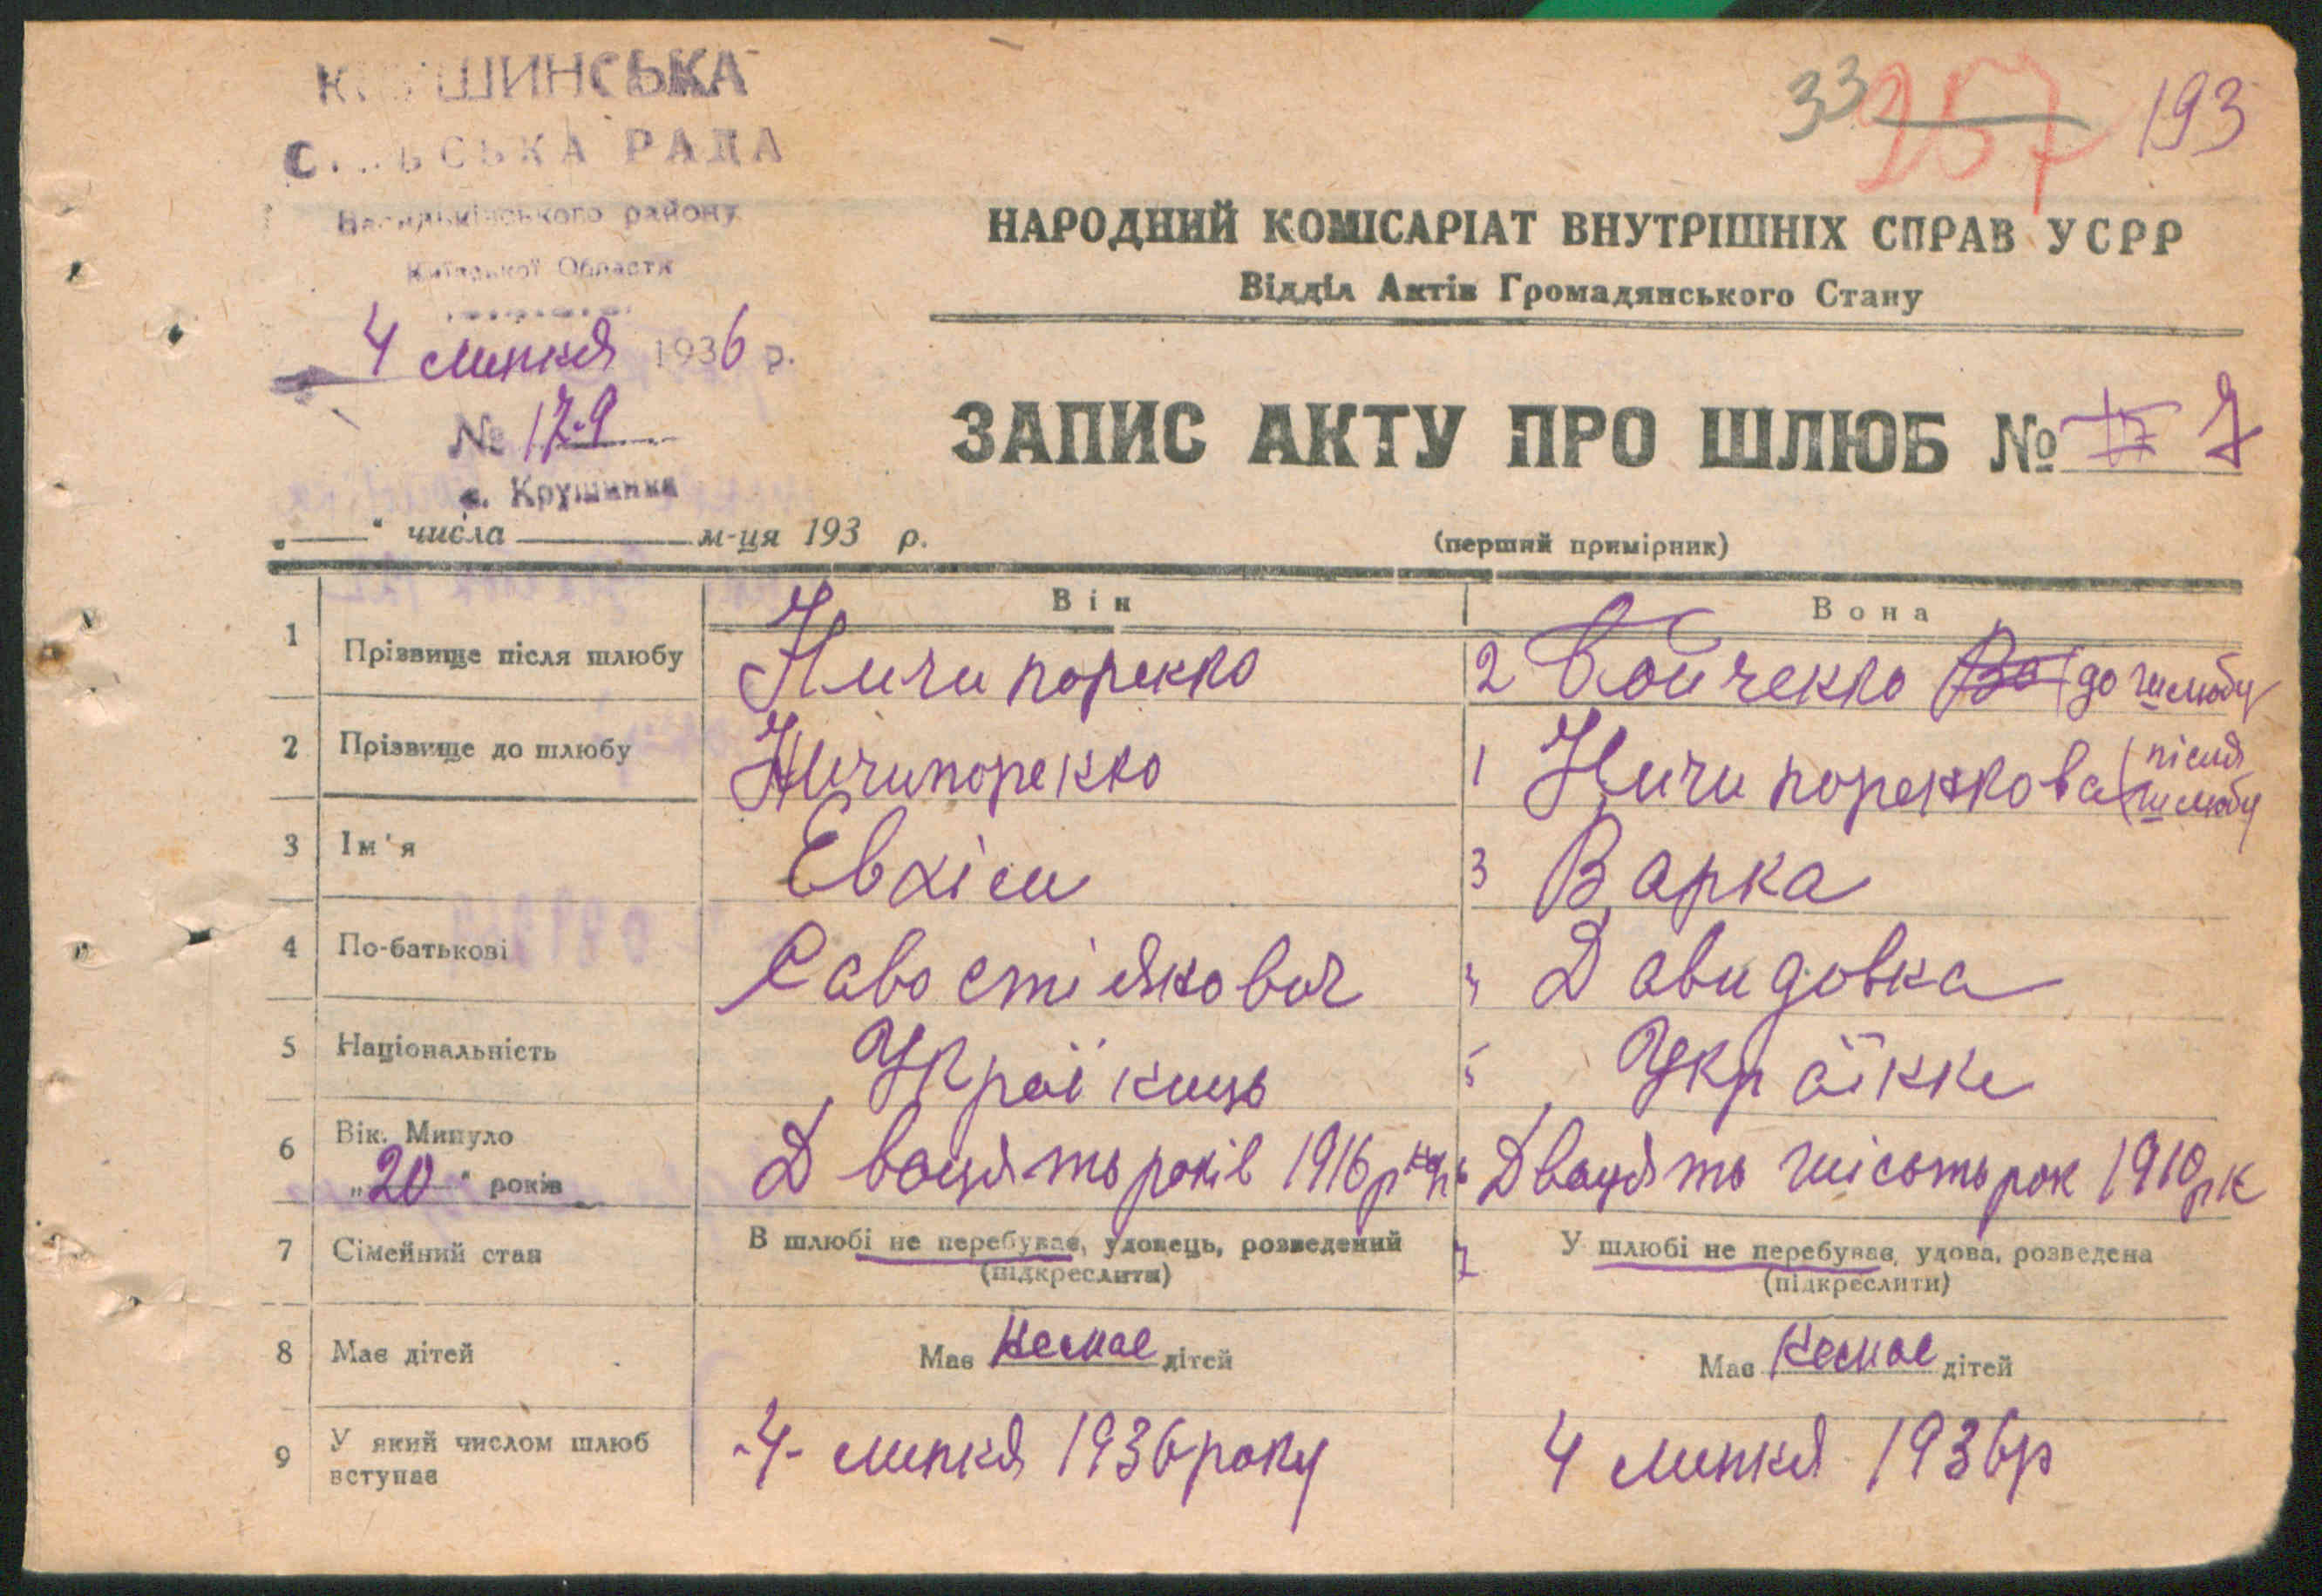 КРУШИНСЬКА
СІЛЬСЬКА РАДА
Васильківського району
Київської Области
4 липня 1936 р.
№ 179
с. Крушинка
33 257 193
НАРОДНИЙ КОМІСАРІАТ ВНУТРІШНІХ СПРАВ УСРР
Відділ Актів Громадянського Стану
ЗАПИС АКТУ ПРО ШЛЮБ № 17 7
„ “ числа м-ця 193 р.
(перший примірник)
Він Вона
1 Прізвище після шлюбу Ничипоренко 2 Бойченко Во (до шлюбу
2 Прізвище до шлюбу Ничипоренко 1 Ничипоренкова (після шлюбу
3 Ім'я Евхім 3 Варка
4 По-батькові Савостіянович 4 Давидовна
5 Національність Україниць 5 Українка
6 Вік. Минуло „20“ років Двацять років 1916р нар 6 Двацять шість рок 1910р
7 Сімейний стан В шлюбі не перебував, удовець, розведений (підкреслити) 7 У шлюбі не перебував, удова, розведена (підкреслити)
8 Має дітей Має немає дітей Має немає дітей
9 У який числом шлюб вступає -4- липня 1936 року 4 липня 1936р